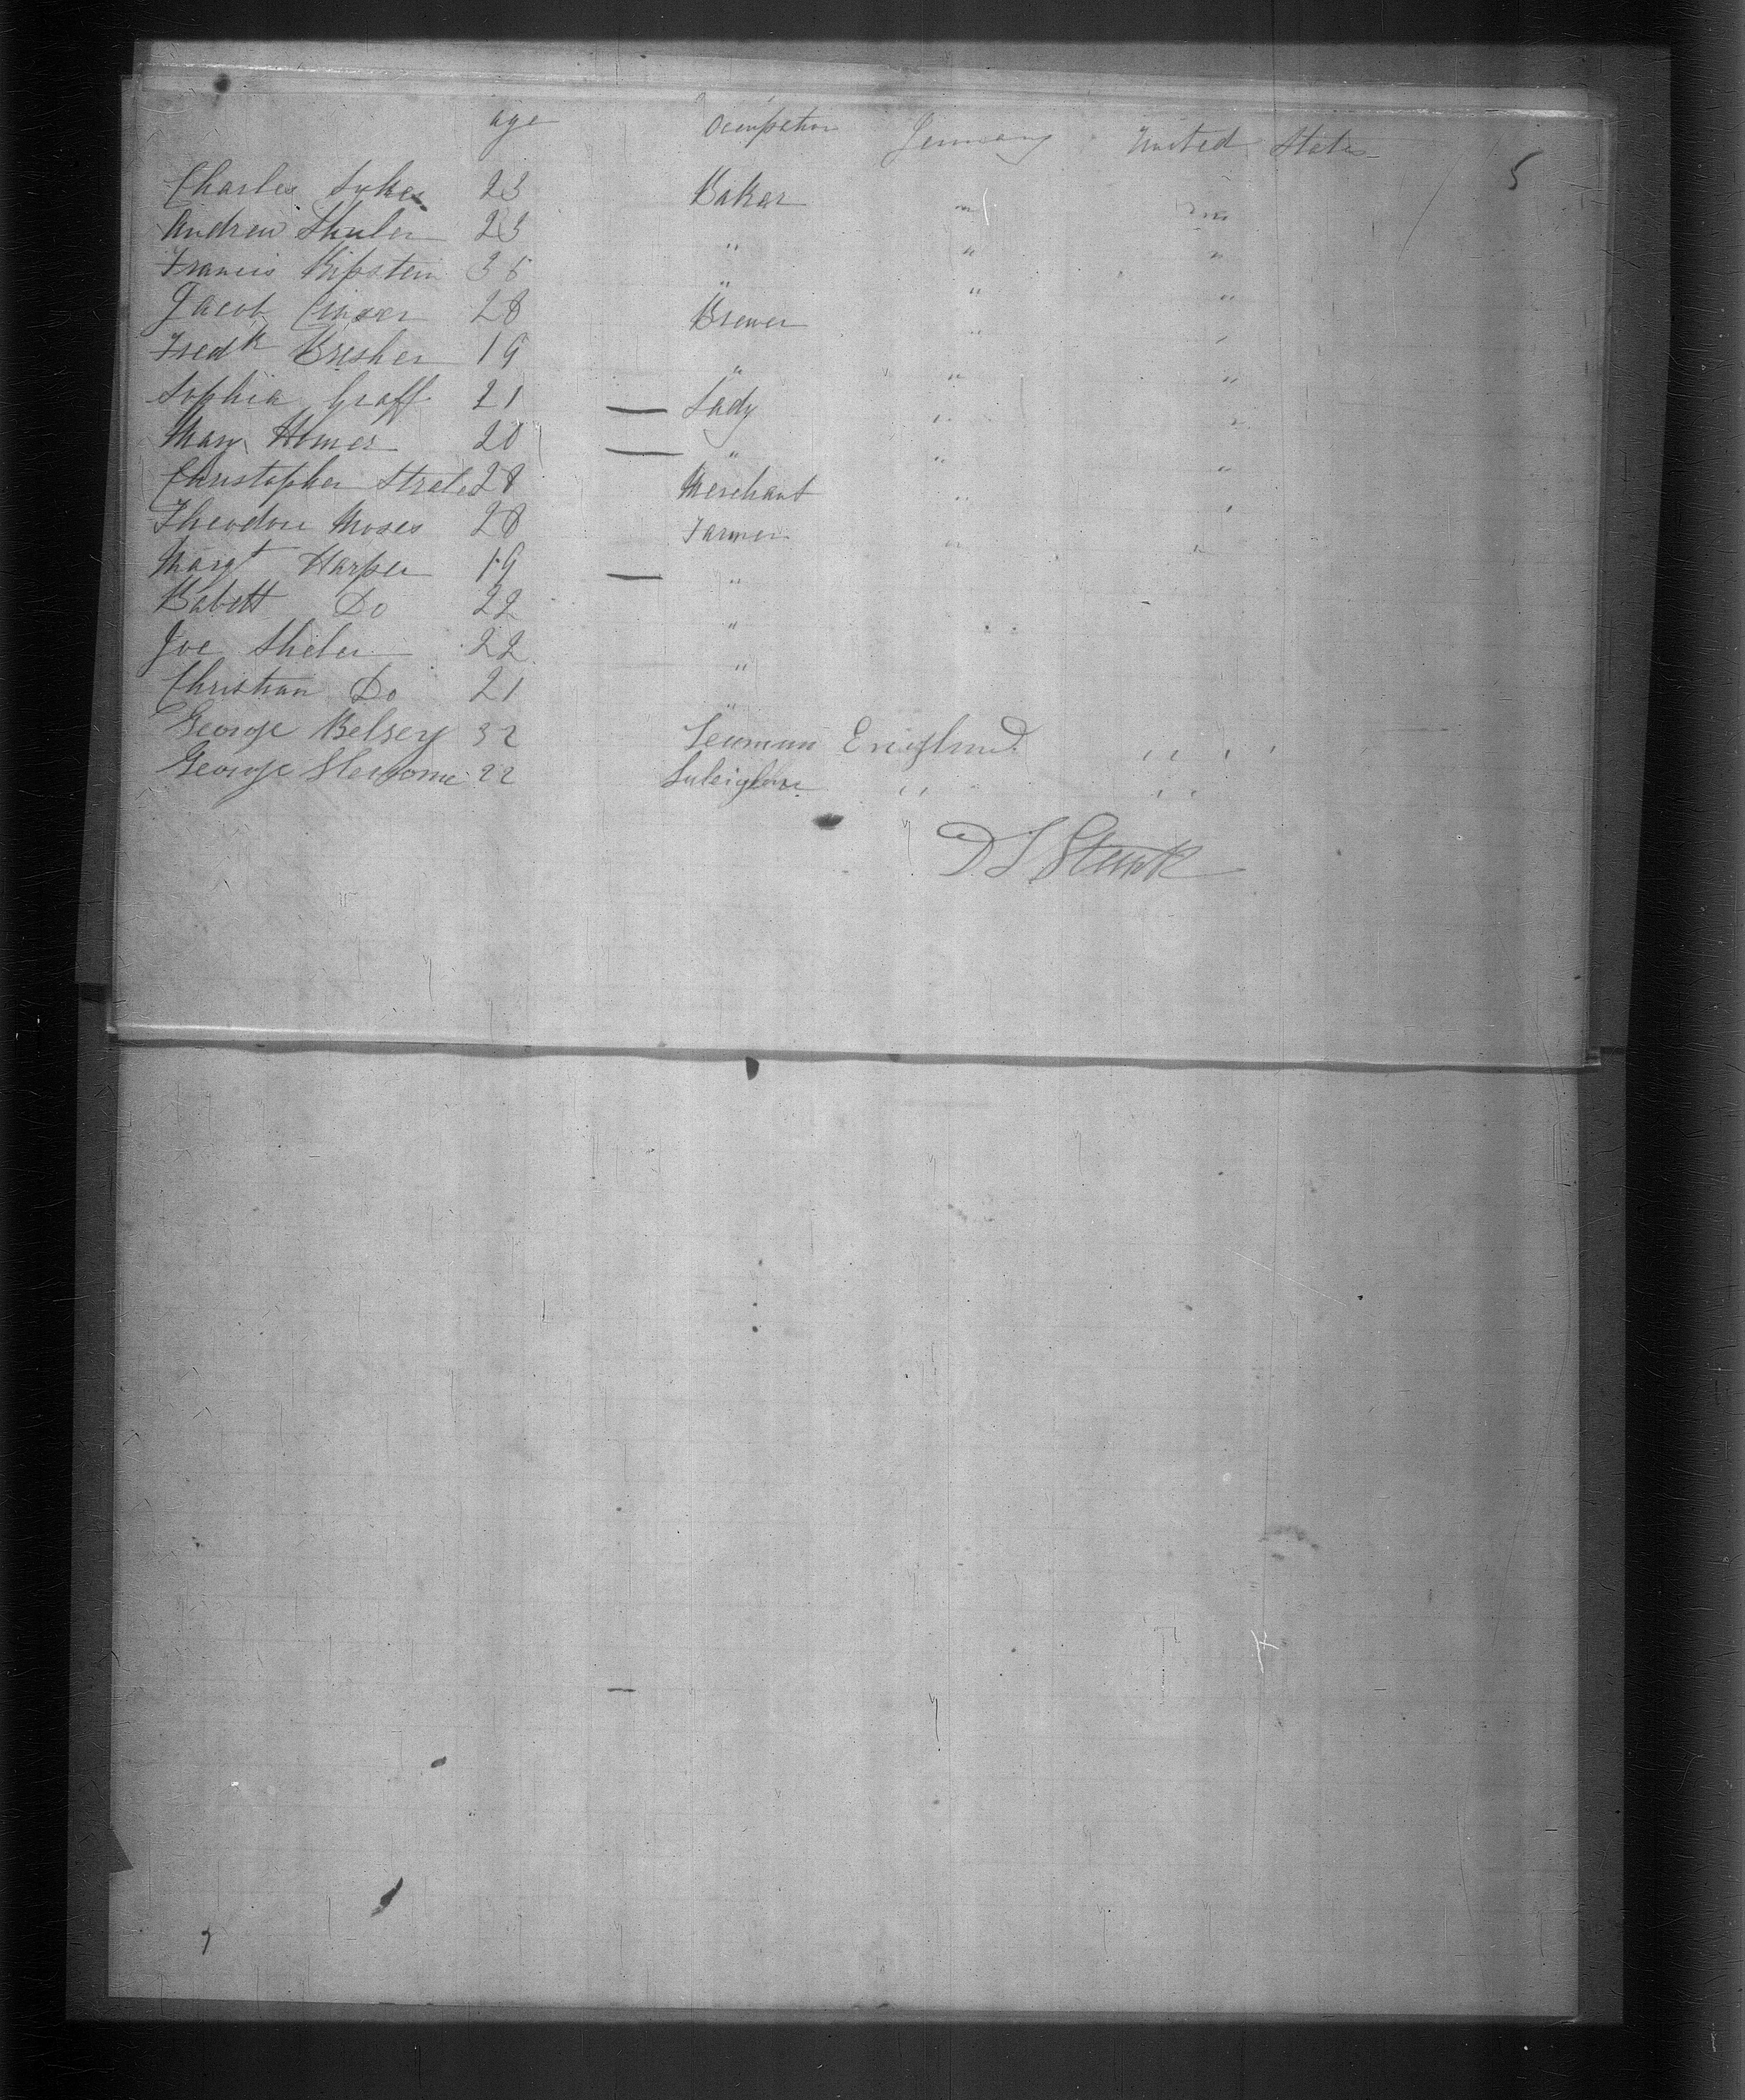 age Occupation Germany United States
5
Charles Syker 23 Baker " "
Andrew Shuler 23 " " "
Francis Kipstein 36 " " "
Jacob 28 Brewer " "
Fredk Bresher 19 " " "
Sophia Graff 21 — Lady " "
Mary Homer 20 — " " "
Christopher Strele 28 Merchant " "
Theodore Moses 28 Farmer " "
Margt Harper 19 — "
Babett Do 22 "
Joe Sheler 22 "
Christian Do 21 "
George Belsey 32 Seaman England " "
George 22 " "